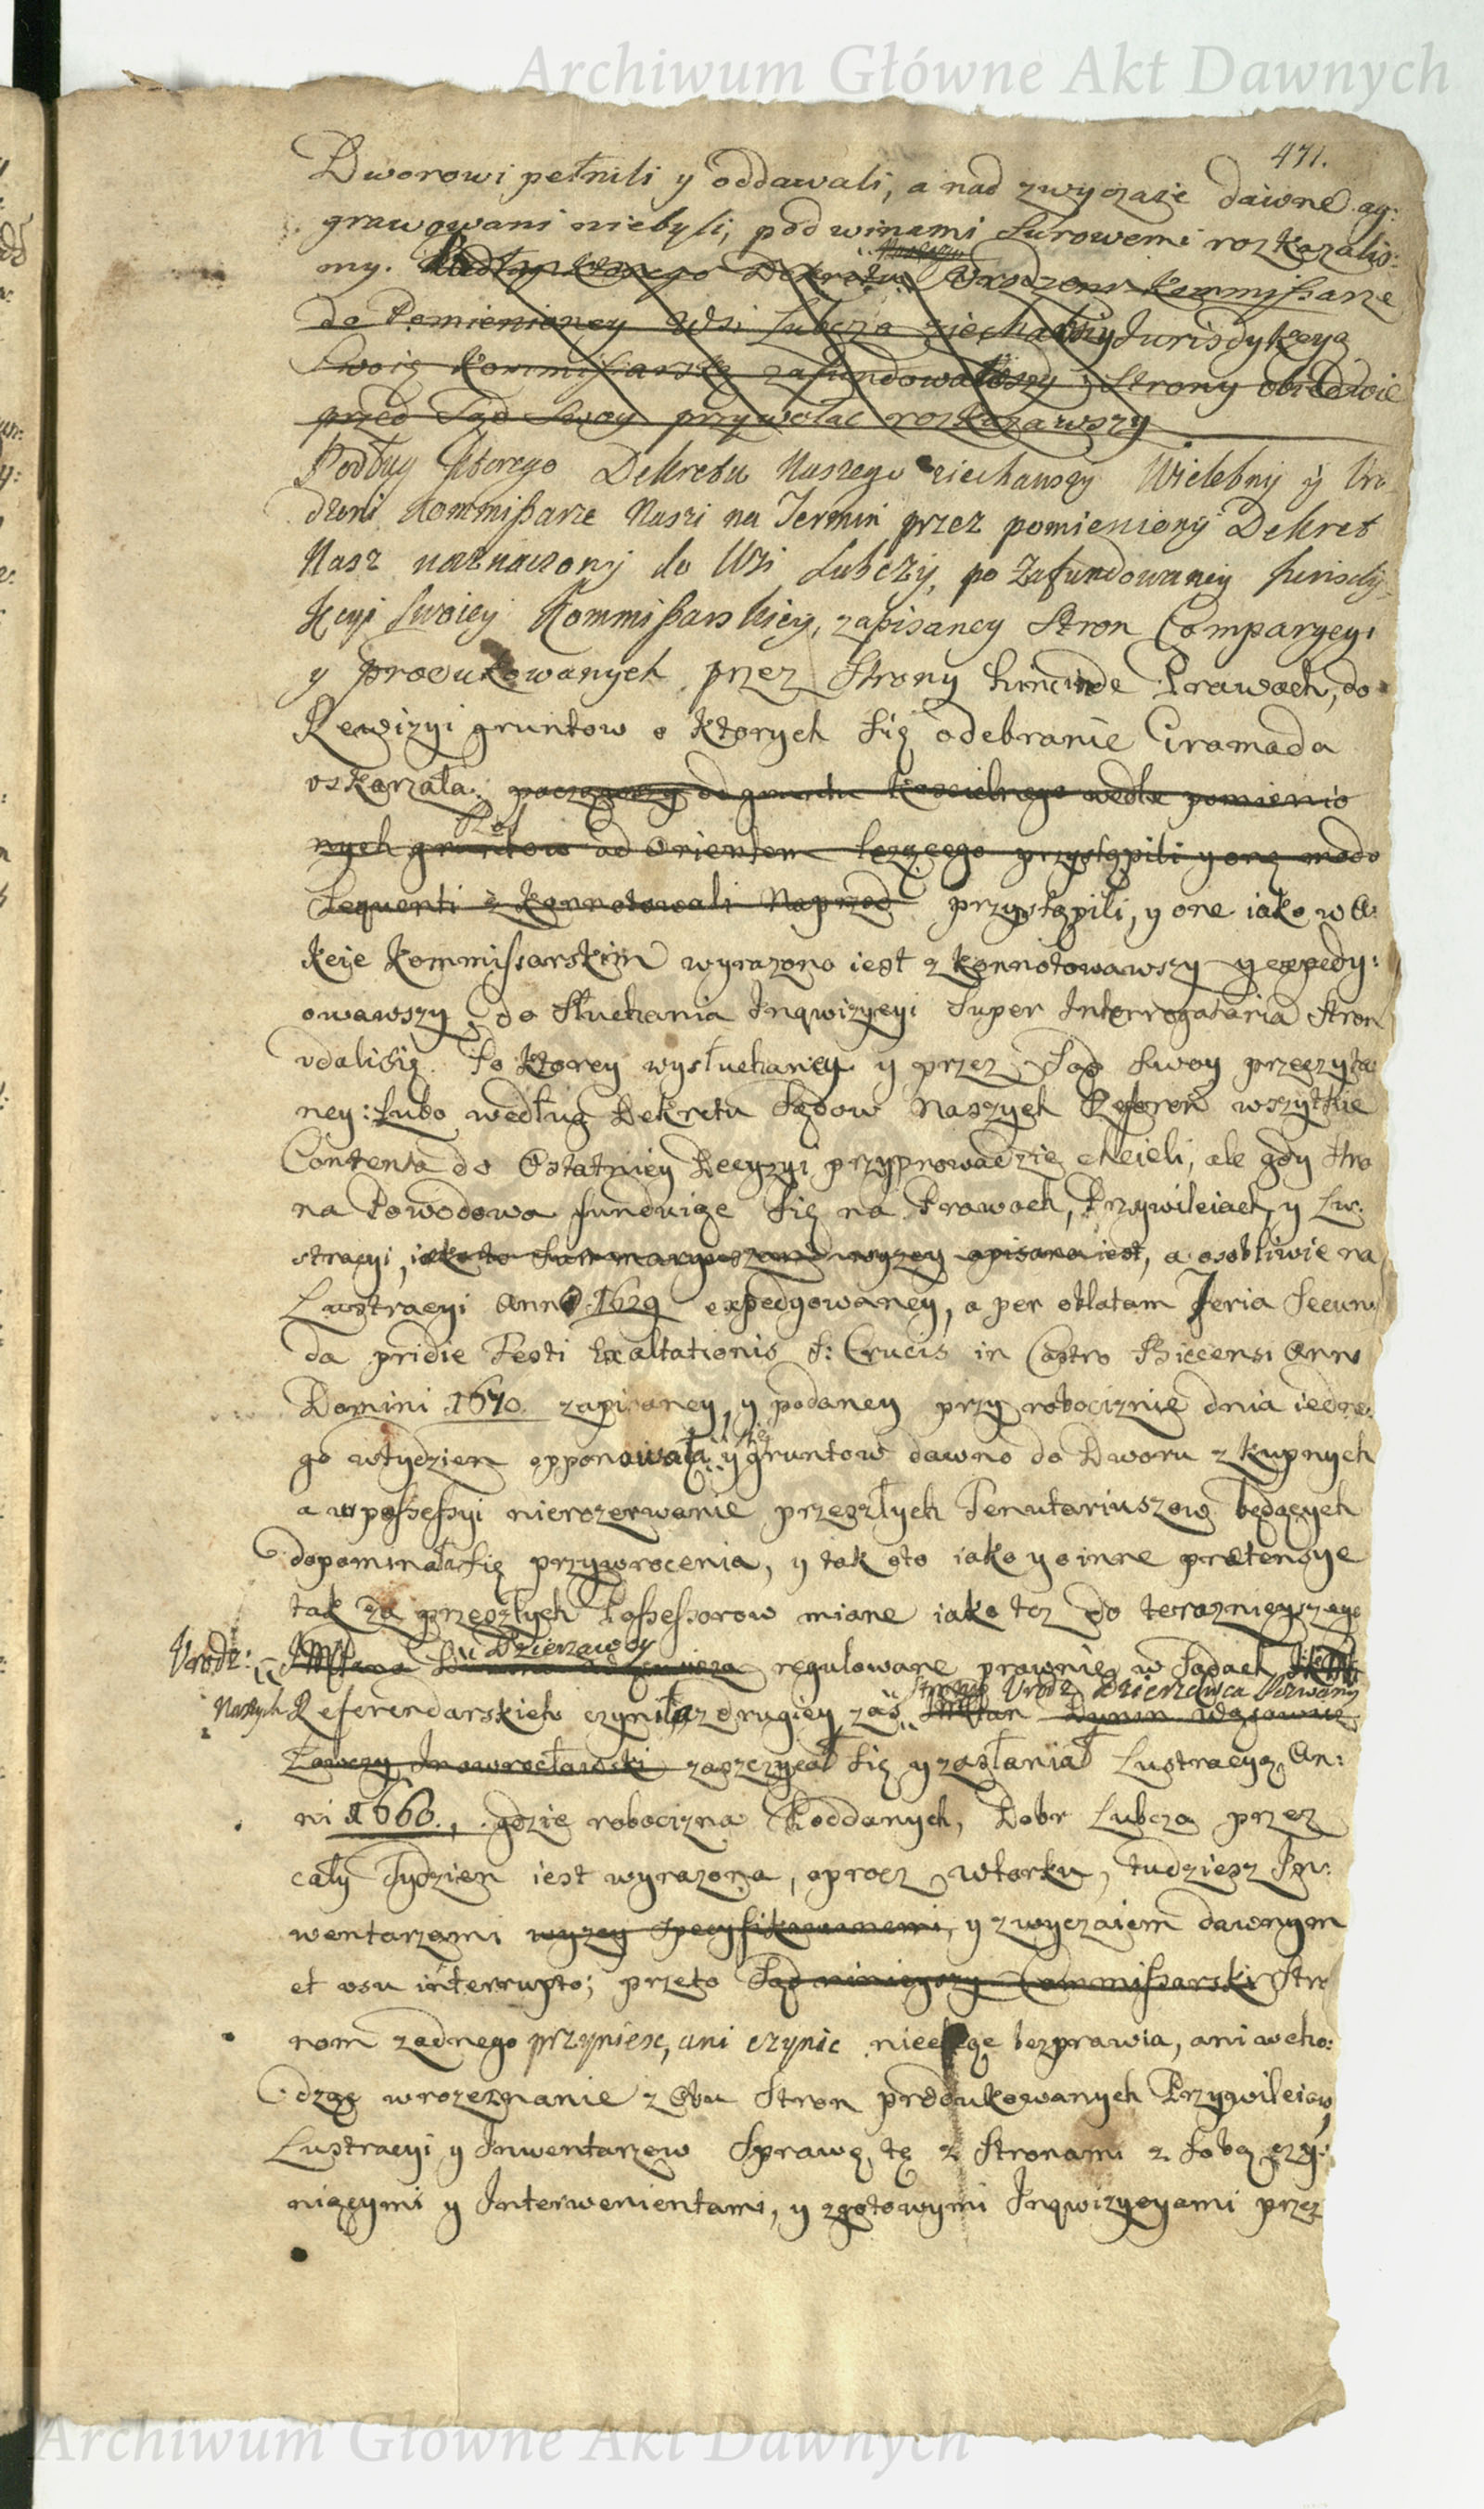 Archiwum Główne Akt Dawnych
471.
Dworowi pełnili y oddawali, a nad zwyczaie dawne ag:
grawowani niebyli, pod winami surowemi roskazalis:
my. Podług Dekretu Urodzeni Kommissarze
do Pomienioney Wsi Lubcza ziechawszy Jurisdykcyą
Swoię Kommissarską zafundowawszy, Strony obiedwie
przed Sąd Swoy przywołac roskazawszy
Podług ktorego Dekretu Naszego ziechawszy Wielebny y Uro
dzeni Kommissarze Naszi na Termin przez pomieniony Dekret
Nasz naznaczony do Wsi Lubczy, po zafundowaney Jurisdy
kcyi swoiey Kommissarskiey, zapisaney Stron Comparycyi
y produkowanych przez Strony hincinde Prawach, do
Rewizyi gruntow o ktorych się odebranie Gromada
oskarzała. począwszy od gruntu Koscielnego wedle pomienio
nych gruntow ad Orientem lezącego przystąpili y onę modo
Sequenti z konnotowali Naprzod przystąpili, y one iako w A:
kcie Kommissarskim wyrazono iest z konnotowawszy y expedy:
owawszy, do Słuchania Inqwizycyi Super Interrogatoria Stron
udalisię. Po ktorey wysłuchaney y przez Sąd Swoy przeczyta
ney: Lubo według Dekretu Sądow Naszych Referen wszytkie
Contenta do Ostatniey Decyzyi przyprowadzic chcieli, ale gdy Stro
na Powodowa funduiąc się na Prawach, Przywileiach, y Lu:
stracyi, iako to Summaryuszami wyzey opisana iest, a osobliwie na
Lustracyi Anno 1629 expedyowaney, a per oblatam Feria Secun
da pridie Festi Exaltationis S: Crucis in Castro Biecensi Anno
Domini 1670 zapisaney, y podaney przy robociznie dnia iedne:
go wtydzien opponowała się y gruntow dawno do Dworu z kupnych
a w possessyi nierozerwanie przeszłych Tenutariuszow będących
dopominałasię przywrocenia, y tak oto iako y o inne prætensye
tak za przeszłych Possessorow miane iako tez do teraznieyszego
Urodz: Dzierzawcy regulowane prawnie w Sądach
Naszych Referendarskich czyniła z drugiey zas Strony Urodz Dzierzawca Pozwany
Łowczy Inowrocławski zaszczycał się y zasłaniał Lustracyą An:
ni 1660., gdzie robocizna Poddanych, Dobr Lubcza przez
cały Tydzien iest wyrazona, oprocz wtorku, tudziesz In:
wentarzami wyzey specyfikowanemi, y zwyczaiem dawnym
et usu interrupto; przeto Sąd ninieyszy Commissarski Stro
nom zadnego przyniesc, ani czynic niechcąc bezprawia, ani wcho:
dząc wrozeznanie z Obu Stron produkowanych Przywileiow,
Lustracyi y Inwentarzow Sprawę tę z Stronami z Sobą czy:
niącymi y Interwenientami, y zgotowymi Inqwizycyami przez
Archiwum Główne Akt Dawnych